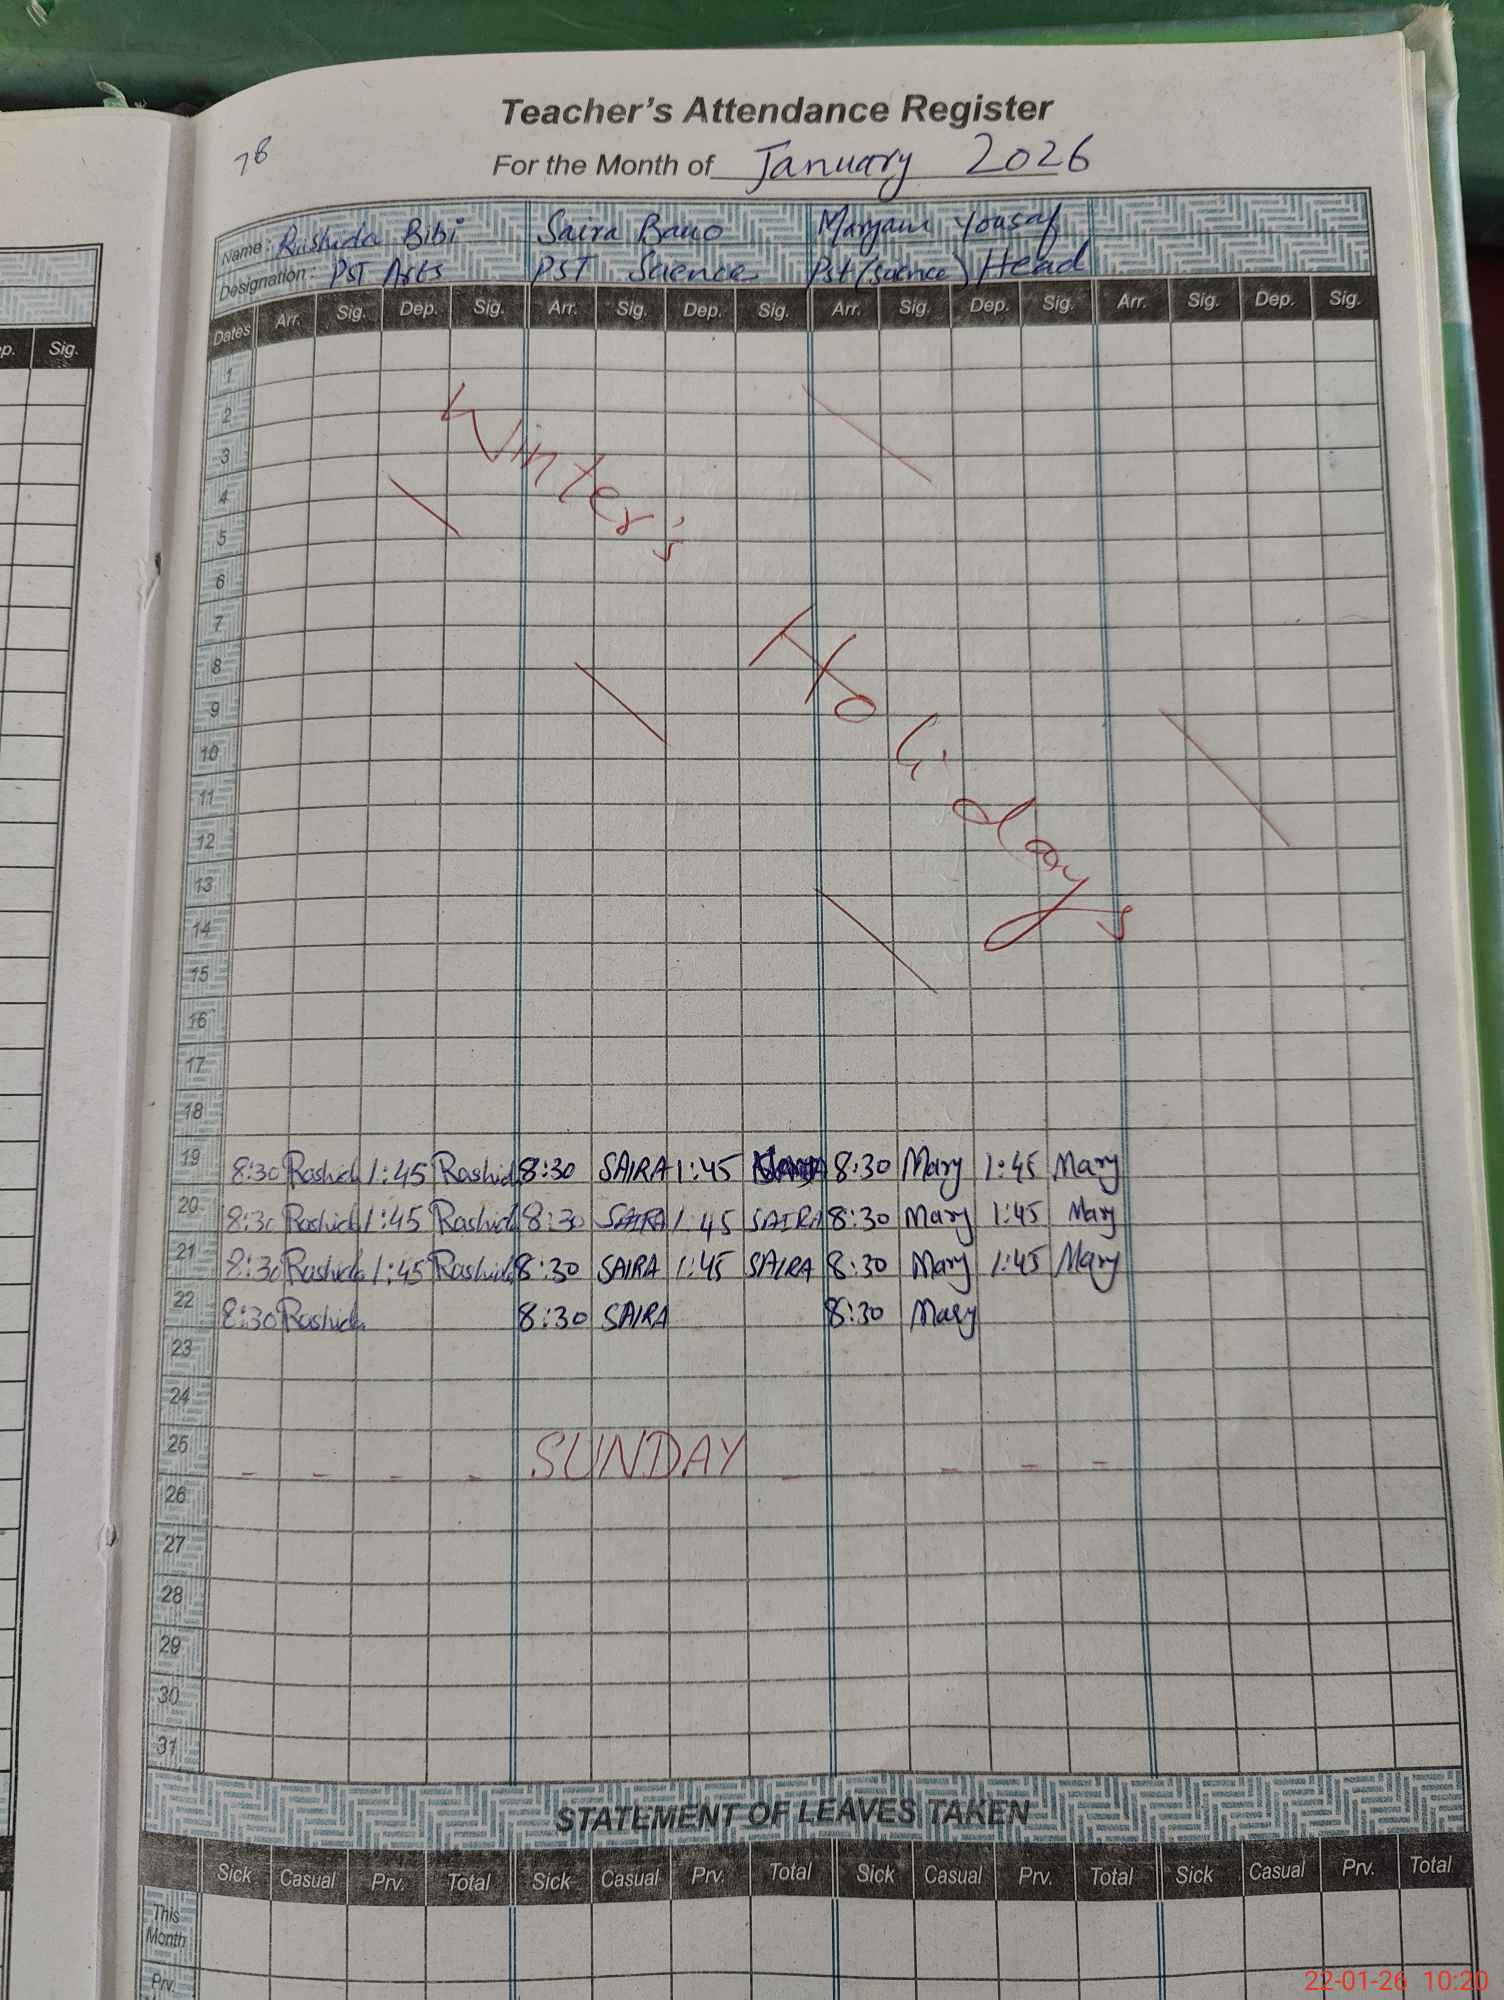 Teacher's Attendance Register
78
For the Month of January 2026
Name: Rashida Bibi Saira Bano Maryam Yousaf
Designation: PST Arts PST Science Pst (science) Head
Dates Arr. Sig. Dep. Sig. Arr. Sig. Dep. Sig. Arr. Sig. Dep. Sig. Arr. Sig. Dep. Sig.
p. Sig.
1
2
3
4
5
Winter's
6
7
8
9
10
11
12
13
14
Holidays
15
16
17
18
19 8:30 Rashida 1:45 Rashida 8:30 SAIRA 1:45 8:30 Mary 1:45 Mary
20 8:30 Rashida 1:45 Rashida 8:30 SAIRA 1:45 SAIRA 8:30 Mary 1:45 Mary
21 8:30 Rashida 1:45 Rashida 8:30 SAIRA 1:45 SAIRA 8:30 Mary 1:45 Mary
22 8:30 Rashida 8:30 SAIRA 8:30 Mary
23
24
25 SUNDAY
26
27
28
29
30
31
STATEMENT OF LEAVES TAKEN
Sick Casual Prv. Total Sick Casual Prv. Total Sick Casual Prv. Total Sick Casual Prv. Total
This
Month
Prv.
22-01-26 10:20